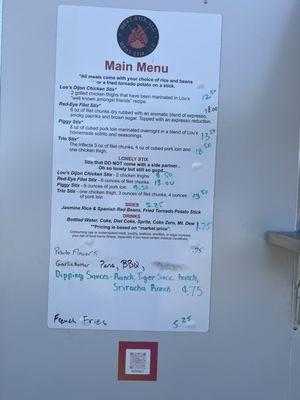 MEAT STIX
Main Menu
*All meals come with your choice of rice and beans
or a fried tornado potato on a stick.
Lou's Dijon Chicken Stix*
12.50
2 grilled chicken thighs that have been marinated in Lou's
"well known amongst friends" recipe.
Red-Eye Filet Stix*
18.00
6 oz of filet chunks dry rubbed with an aromatic blend of espresso,
smoky paprika and brown sugar. Topped with an espresso reduction.
Piggy Stix*
13.50
8 oz of cubed pork loin marinated overnight in a blend of Lou's
homemade sofrito and seasonings.
Trio Stix*
18.50
The trifecta 3 oz of filet chunks, 4 oz of cubed pork loin and
one chicken thigh.
LONELY STIX
Stix that DO NOT come with a side partner...
Oh so lonely but still so good...
Lou's Dijon Chicken Stix - 2 chicken thighs 8.50
Red-Eye Filet Stix - 6 ounces of filet chunks 13.00
Piggy Stix - 8 ounces of pork loin 9.50
Trio Stix - one chicken thigh, 3 ounces of filet chunks, 4 ounces
of pork loin 13.50
SIDES 5.25
Jasmine Rice & Spanish Red Beans, Fried Tornado Potato Stick
DRINKS
Bottled Water, Coke, Diet Coke, Sprite, Coke Zero, Mt. Dew 1.75
**Pricing is based on "market price".
Consuming raw or undercooked meat, poultry, seafood, shellfish, or eggs increases
your risk of food borne illness, especially if you have certain medical conditions.
Potato Flavors .75
Garlic butter Parm, BBQ,
Dipping Sauces - Ranch, Tiger Sauce Ranch,
Sriracha Ranch 4.75
French Fries 5.25